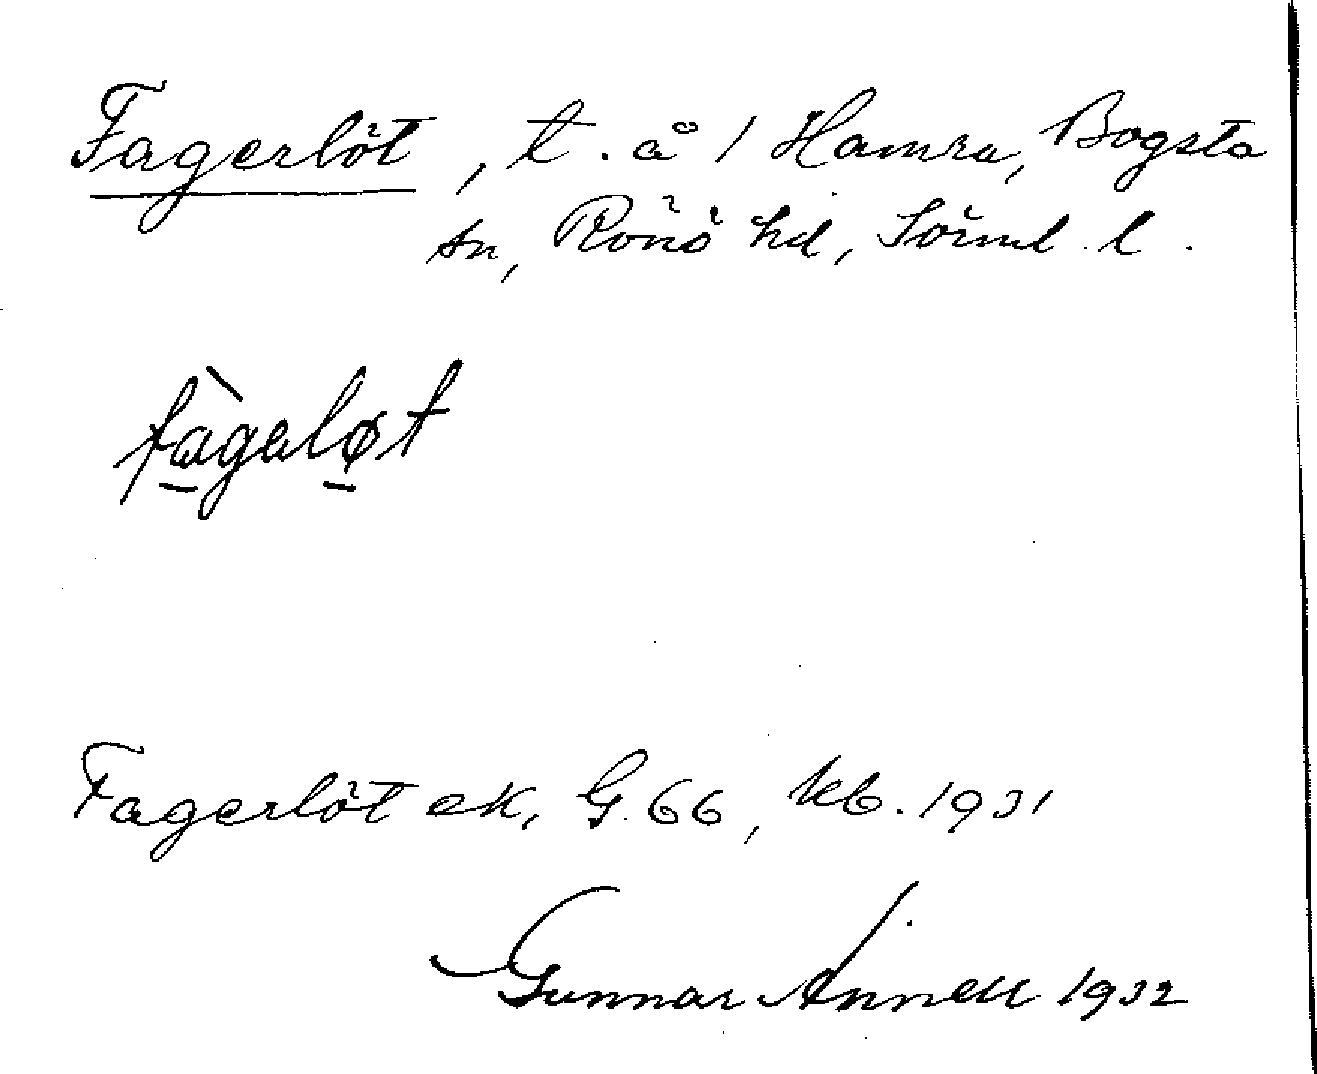 Fagerlöt, t. å 1 Hamra, Bogsta
sn, Rönö hd, Sörml. l.
fàgəløt
Fagerlöt ek, G. 66, kb. 1931
Gunnar Annell 1932